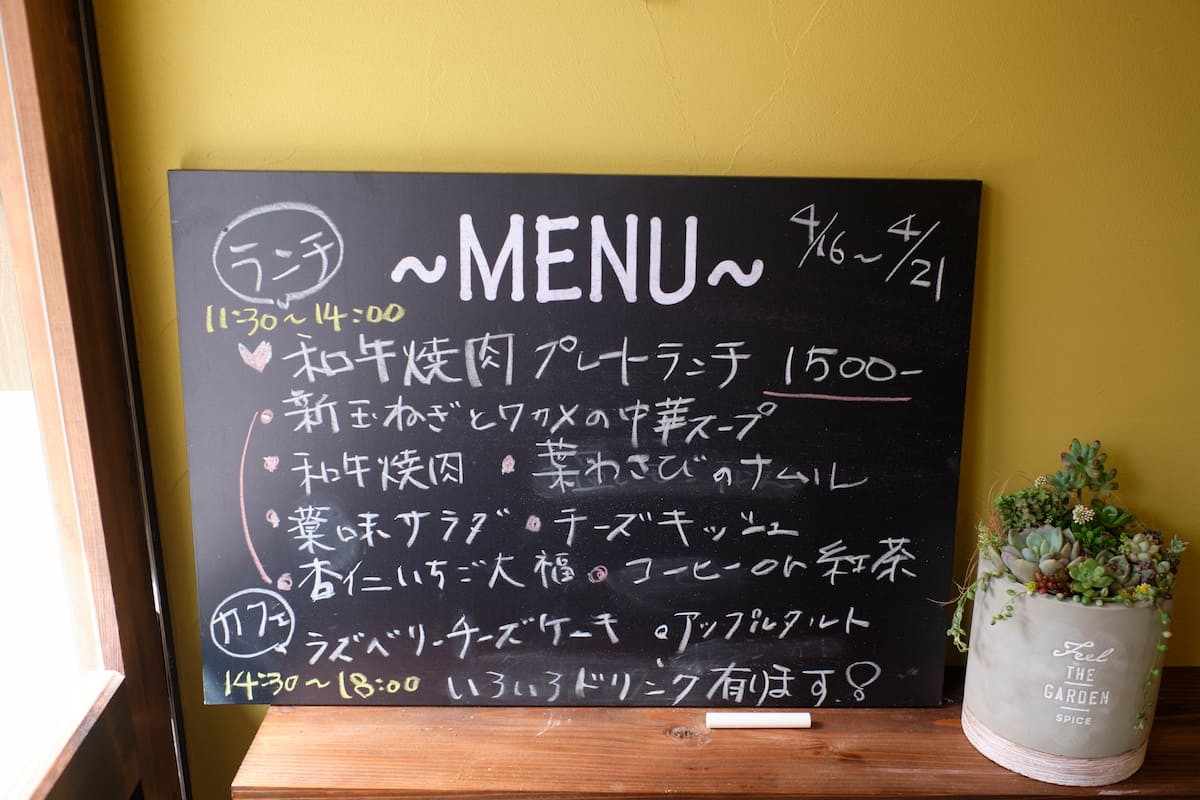 ランチ
~MENU~
4/16~4/21
11:30~14:00
和牛焼肉プレートランチ 1500-
新玉ねぎとワカメの中華スープ
和牛焼肉 葉わさびのナムル
薬味サラダ チーズキッシュ
杏仁いちご大福 コーヒーor紅茶
カフェ
ラズベリーチーズケーキ アップルタルト
14:30~18:00 いろいろドリンク有ります!
Feel
THE
GARDEN
SPICE